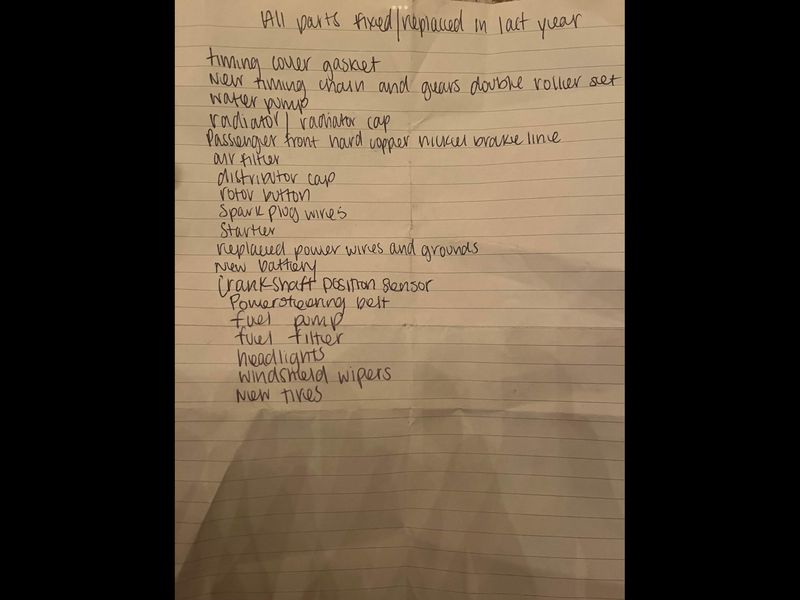 All parts fixed/replaced in last year
timing cover gasket
New timing chain and gears double roller set
water pump
radiator/radiator cap
Passenger front hard copper nickel brake line
air filter
distributor cap
rotor button
Spark plug wires
Starter
replaced power wires and grounds
New battery
Crankshaft position sensor
Powersteering belt
fuel pump
fuel filter
headlights
windshield wipers
New tires